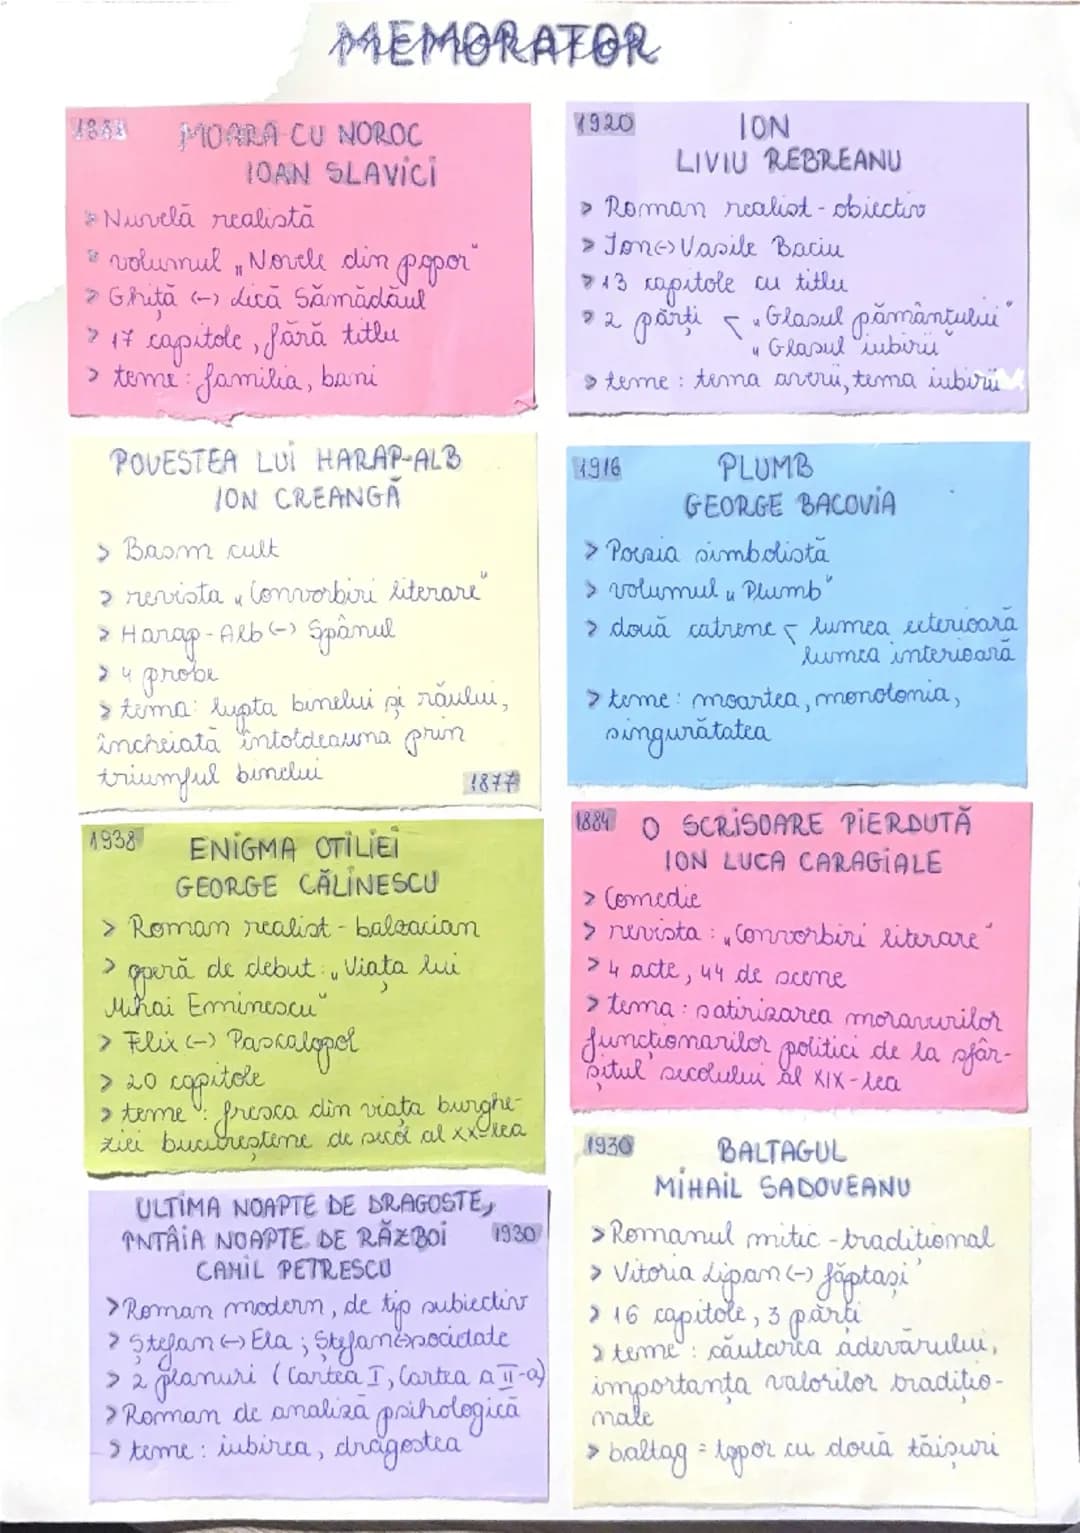 MEMORATOR
1881 MOARA CU NOROC
IOAN SLAVICI
> Nuvelă realistă
> volumul „Novele din popor"
> Ghiță (-) Lică Sămădăul
> 17 capitole, fără titlu
> teme: familia, bani
POVESTEA LUI HARAP-ALB
ION CREANGĂ
> Basm cult
> revista „Convorbiri literare"
> Harap-Alb (-) Spânul
> 4 probe
> tema: lupta binelui și răului,
încheiată întotdeauna prin
triumful binelui
1877
1938 ENIGMA OTILIEI
GEORGE CĂLINESCU
> Roman realist-balzacian
> operă de debut: „Viața lui
Mihai Eminescu"
> Felix (-) Pascalopol
> 20 capitole
> teme: fresca din viața burghe-
ziei bucureștene de secol al XX-lea
ULTIMA NOAPTE DE DRAGOSTE,
ÎNTÂIA NOAPTE DE RĂZBOI 1930
CAMIL PETRESCU
> Roman modern, de tip subiectiv
> Ștefan (-) Ela; Ștefan (-) societate
> 2 planuri (Cartea I, Cartea a II-a)
> Roman de analiză psihologică
> teme: iubirea, dragostea
1920 ION
LIVIU REBREANU
> Roman realist-obiectiv
> Ion (-) Vasile Baciu
> 13 capitole cu titlu
> 2 părți < „Glasul pământului"
„Glasul iubirii"
> teme: tema averii, tema iubirii
1916 PLUMB
GEORGE BACOVIA
> Poezia simbolistă
> volumul „Plumb"
> două catrene < lumea exterioară
lumea interioară
> teme: moartea, monotonia,
singurătatea
1884 O SCRISOARE PIERDUTĂ
ION LUCA CARAGIALE
> Comedie
> revista: „Convorbiri literare"
> 4 acte, 44 de scene
> tema: satirizarea moravurilor
funcționarilor politici de la sfâr-
șitul secolului al XIX-lea
1930 BALTAGUL
MIHAIL SADOVEANU
> Romanul mitic-tradițional
> Vitoria Lipan (-) făptași
> 16 capitole, 3 părți
> teme: căutarea adevărului,
importanța valorilor tradițio-
nale
> baltag = topor cu două tăișuri